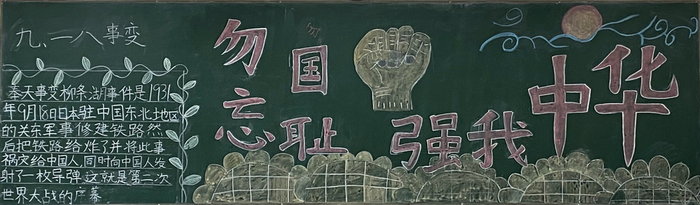 九.一八事变
奉天事变柳条湖事件是1931
年9月18日本驻中国东北地区
的关东军事修建铁路然
后把铁路给炸了并将此事
祸灾给中国人,同时向中国人发
射了一枚导弹这就是第二次
世界大战的序幕
勿忘国耻
强我中华